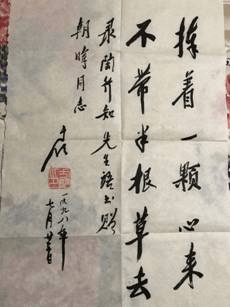 捧着一颗心来
不带半根草去
录陶行知先生语书赠
朝晖同志
一九九八年
七月廿吉